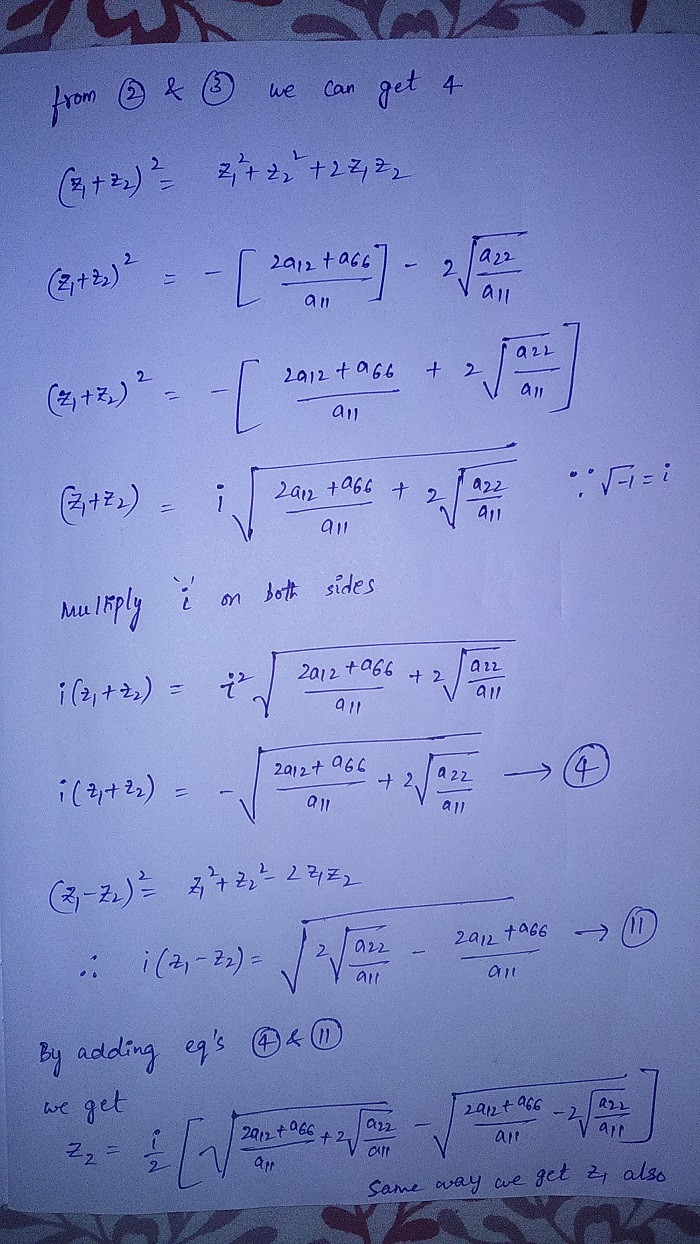 from ② & ③ we can get 4
(z₁+z₂)² = z₁²+z₂²+2z₁z₂
(z₁+z₂)² = -[(2a₁₂+a₆₆)/a₁₁] - 2√(a₂₂/a₁₁)
(z₁+z₂)² = -[(2a₁₂+a₆₆)/a₁₁ + 2√(a₂₂/a₁₁)]
(z₁+z₂) = i√((2a₁₂+a₆₆)/a₁₁ + 2√(a₂₂/a₁₁)) ∵ √-1 = i
Multiply 'i' on both sides
i(z₁+z₂) = i²√((2a₁₂+a₆₆)/a₁₁ + 2√(a₂₂/a₁₁))
i(z₁+z₂) = -√((2a₁₂+a₆₆)/a₁₁ + 2√(a₂₂/a₁₁)) → ④
(z₁-z₂)² = z₁²+z₂²-2z₁z₂
∴ i(z₁-z₂) = √(2√(a₂₂/a₁₁) - (2a₁₂+a₆₆)/a₁₁) → ⑪
By adding eq's ④ & ⑪
we get
z₂ = i/2 [√((2a₁₂+a₆₆)/a₁₁ + 2√(a₂₂/a₁₁)) - √((2a₁₂+a₆₆)/a₁₁ - 2√(a₂₂/a₁₁))]
Same way we get z₁ also